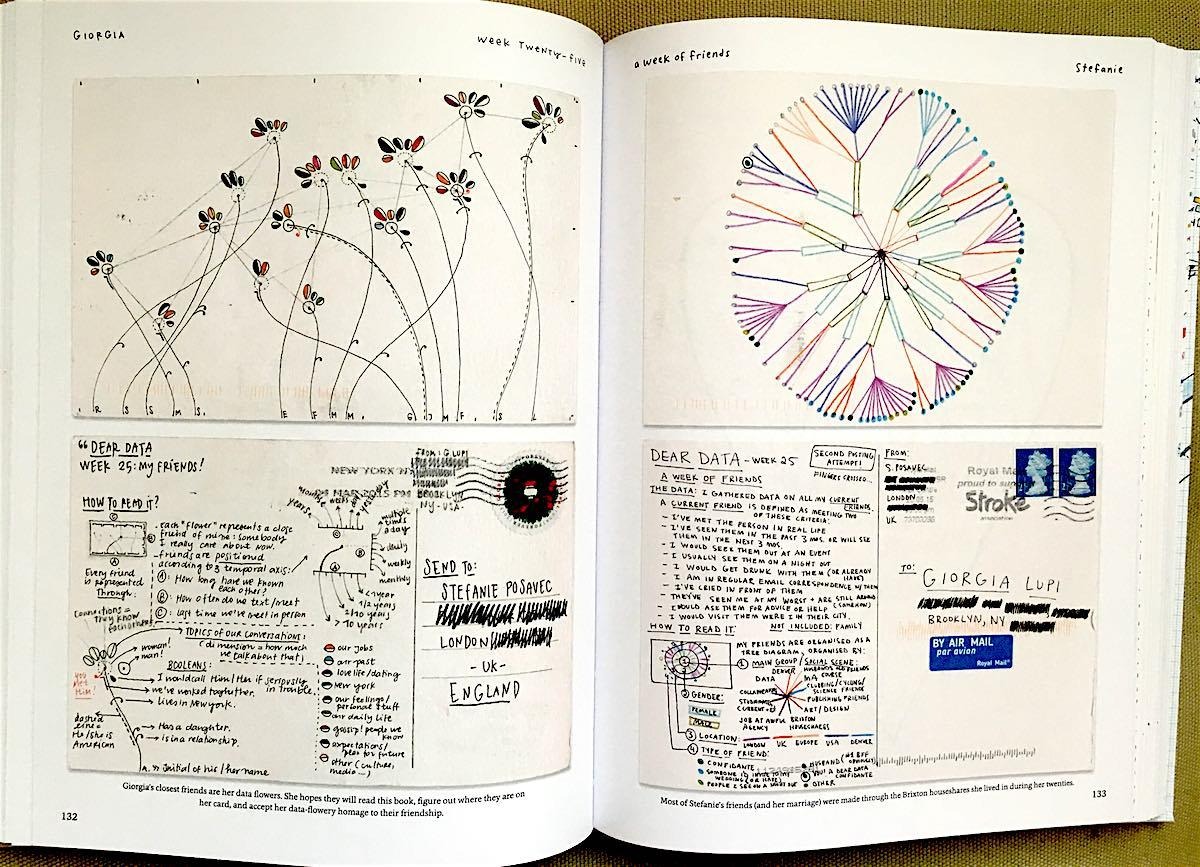 GIORGIA
WEEK TWENTY-FIVE
R S S M S. E F H M G J M F. S L
"DEAR DATA
WEEK 25: MY FRIENDS!
HOW TO READ IT?
. each "flower" represents a close
friend of mine: somebody
I really care about now.
- friends are positioned
according to 3 temporal axis:
A: How long have we known
each other?
B: How often do we text/meet
C: last time we've meet in person
Every friend
is represented
Through:
Connections =
They know
TOPICS of our CONVERSATIONS:
(dimension = how much
we talk about that)
woman!
man!
BOOLEANS:
I would call Him/Her if seriously
in trouble.
we've worked together.
Lives in New York.
YOU
MET
HIM!
dashed
line =
He/she is
AMERICAN
Has a daughter.
is in a relationship.
A. => Initial of his/her name
years
multiple
times
a day
daily
weekly
monthly
<1 year
1/2 years
> 10 years
our jobs
our past
love life/dating
new york
our feelings/
personal stuff
our daily life
gossip! people we
know
expectations/
plans for future
other (culture,
media...)
FROM: G LUPI
BROOKLYN
NY-USA.
NEW YORK NY
SEND TO:
STEFANIE POSAVEC
LONDON
-UK-
ENGLAND
Giorgia's closest friends are her data flowers. She hopes they will read this book, figure out where they are on
her card, and accept her data-flowery homage to their friendship.
132
a week of friends
Stefanie
DEAR DATA - WEEK 25
SECOND POSTING
ATTEMPT!
FINGERS CROSSED...
A WEEK OF FRIENDS
THE DATA: I GATHERED DATA ON ALL MY CURRENT
FRIENDS.
A CURRENT FRIEND IS DEFINED AS MEETING TWO
OF THESE CRITERIA:
- I'VE MET THE PERSON IN REAL LIFE
- I'VE SEEN THEM IN THE PAST 3 MOS. OR WILL SEE
THEM IN THE NEXT 3 MOS.
- I WOULD SEEK THEM OUT AT AN EVENT
- I USUALLY SEE THEM ON A NIGHT OUT
- I WOULD GET DRUNK WITH THEM (OR ALREADY
HAVE)
- I AM IN REGULAR EMAIL CORRESPONDENCE W/THEM
- I'VE CRIED IN FRONT OF THEM
- THEY'VE SEEN ME AT MY WORST + ARE STILL AROUND
- I WOULD ASK THEM FOR ADVICE OR HELP (SOMEHOW)
- I WOULD VISIT THEM WERE I IN THEIR CITY.
NOT INCLUDED: FAMILY
HOW TO READ IT
MY FRIENDS ARE ORGANISED AS A
TREE DIAGRAM, ORGANISED BY:
1 MAIN GROUP/SOCIAL SCENE:
DENVER
HUSBAND'S FRIENDS
DATA
MA COURSE
CLUBBING/CYCLING/
SCIENCE FRIENDS
PUBLISHING FRIENDS
ART/DESIGN
BRIXTON
HOUSESHARES
JOB AT AWFUL
AGENCY
2 GENDER:
FEMALE
MALE
3 LOCATION:
LONDON UK EUROPE USA DENVER
4 TYPE OF FRIEND:
CONFIDANTE
HUSBAND
SOMEONE I'D INVITE TO MY
WEDDING (OR HAVE)
YOU! A DEAR DATA
CONFIDANTE
PEOPLE I SEE ON A NIGHT OUT
OTHER
FROM:
S. POSAVEC
LONDON
UK
Royal Mail
proud to support
Stroke
association
TO:
GIORGIA LUPI
BROOKLYN, NY
BY AIR MAIL
par avion
Royal Mail
Most of Stefanie's friends (and her marriage) were made through the Brixton houseshares she lived in during her twenties.
133